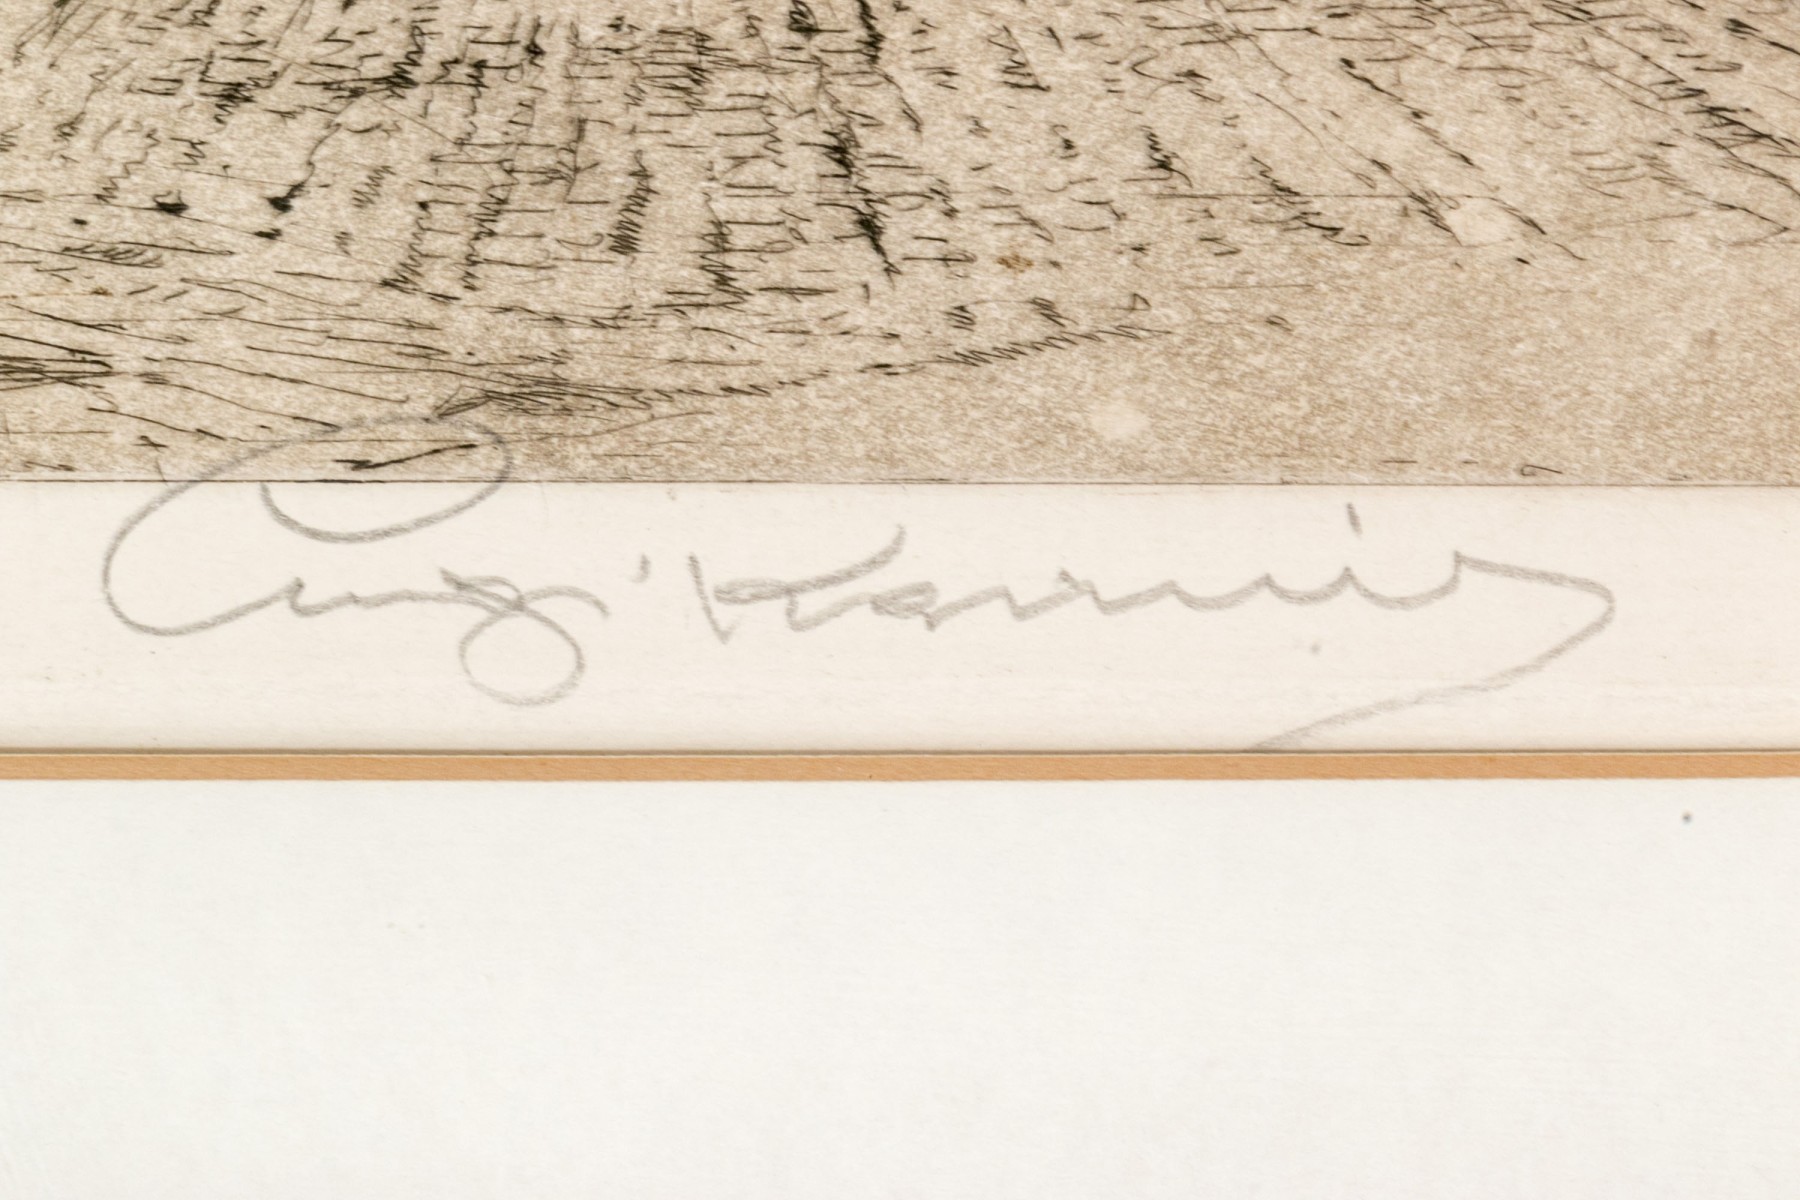 Luigi Kasimir